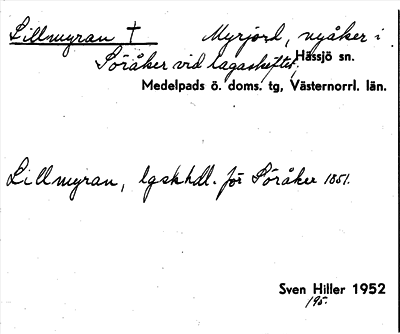 Lillmyran † Myrjord, nyåker i
Söråker vid lagaskiftet, Hässjö sn.
Medelpads ö. doms. tg, Västernorrl. län.
Lillmyran, lgskhdl. för Söråker 1851.
Sven Hiller 1952
195.